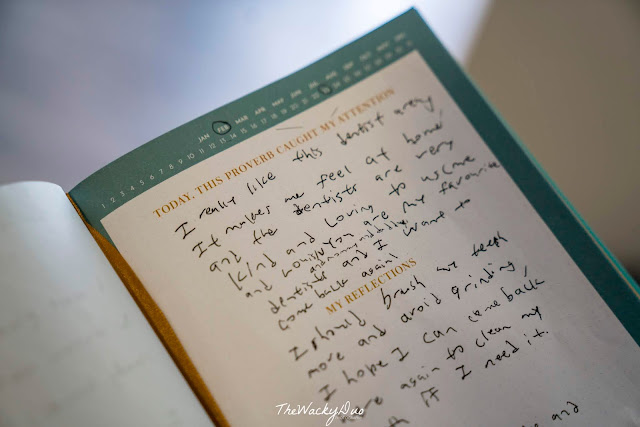 JAN FEB MAR APR MAY JUN JUL AUG SEP OCT NOV DEC
1 2 3 4 5 6 7 8 9 10 11 12 13 14 15 16 17 18 19 20 21 22 23 24 25 26 27 28 29 30 31
TODAY, THIS PROVERB CAUGHT MY ATTENTION
I really like this dentist
It makes me feel at home
and the dentists are very
kind and loving to us(me
and are my favourite
dentists and I want to
come back again!
MY REFLECTIONS
I should brush my teeth
more and avoid grinding,
I hope I can come back
here again to clean my
if I need it.
and
TheWackyDuo